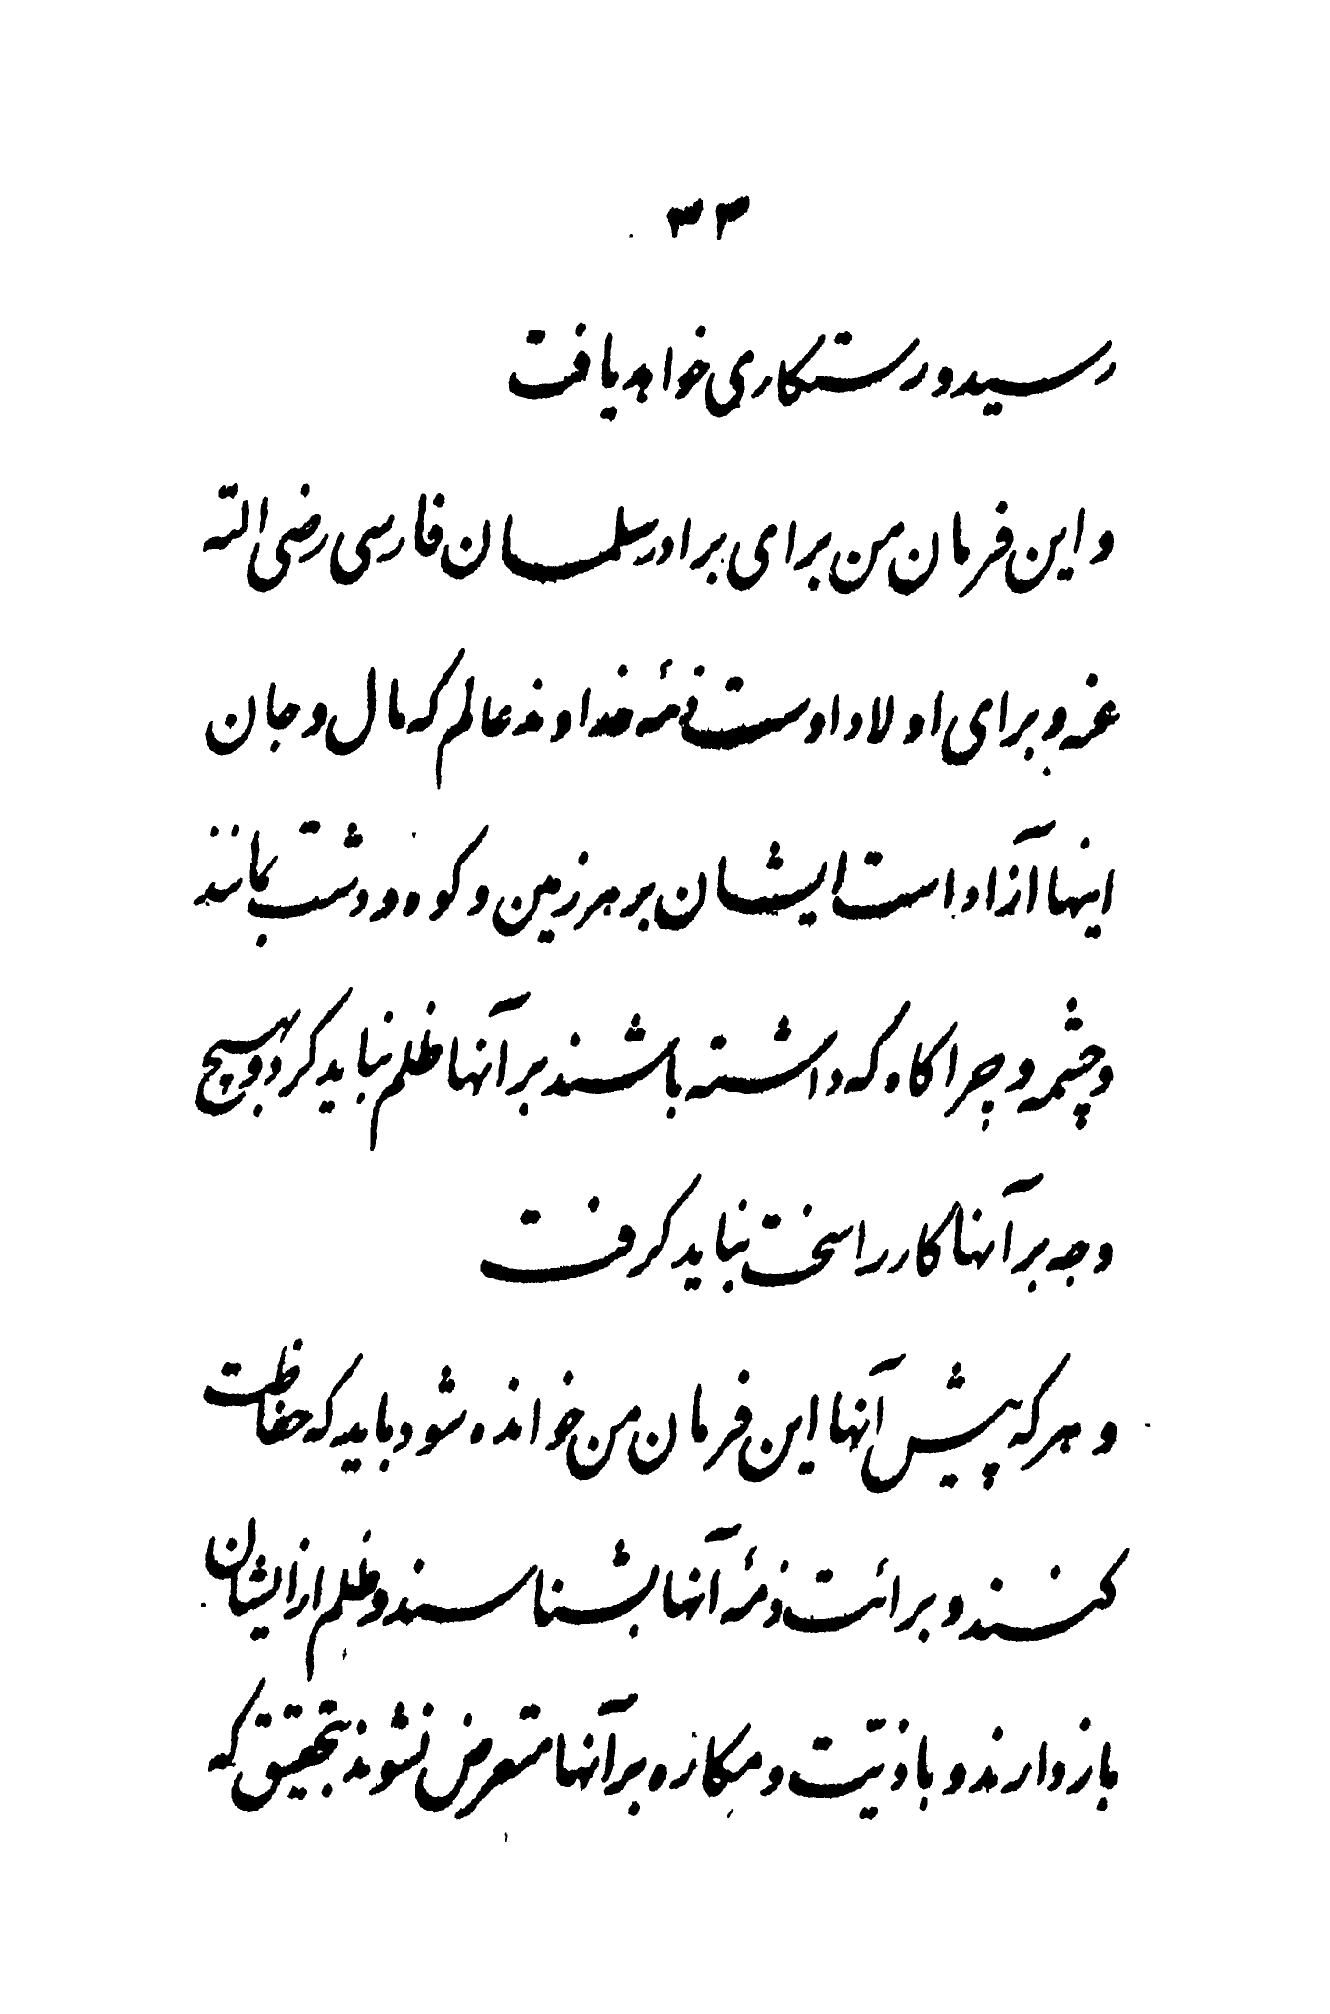 ۳۳
رسید و رستکاری خواهد یافت
و این فرمان من برای برادر سلمان فارسی رضی الله
عنه و برای اولاد اوست ذمهٔ خداوند عالم که مال و جان
اینها آزاد است ایشان بر هر زمین و کوه و دشت بمانند
و چشمه و چراکاه که داشته باشند بر آنها ظلم نباید کرد و بهیچ
وجه بر آنها کار را سخت نباید کرفت
و هر که پیش آنها این فرمان من خوانده شود باید که حفاظت
کنند و برائت ذمهٔ آنها بشناسند و ظلم از ایشان
باز دارند و باذیّت و مکاره بر آنها متعرض نشوند بتحقیق که